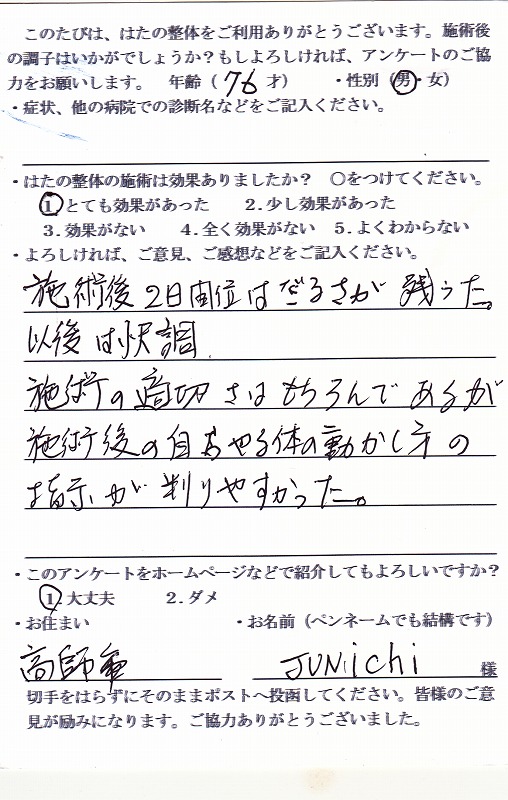 このたびは、はたの整体をご利用ありがとうございます。施術後
の調子はいかがでしょうか？もしよろしければ、アンケートのご協
力をお願いします。　年齢（76才）　・性別（男・女）
・症状、他の病院での診断名などをご記入ください。
・はたの整体の施術は効果ありましたか？　○をつけてください。
1とても効果があった　2.少し効果があった
3.効果がない　4.全く効果がない　5.よくわからない
・よろしければ、ご意見、ご感想などをご記入ください。
施術後2日間位はだるさが残った。
以後は快調
施術の適切さはもちろんであるが
施術後の自分でやる体の動かし方の
指示が判りやすかった。
・このアンケートをホームページなどで紹介してもよろしいですか？
1.大丈夫　2.ダメ
・お住まい　・お名前（ペンネームでも結構です）
高師 JUNichi 様
切手をはらずにそのままポストへ投函してください。皆様のご意
見が励みになります。ご協力ありがとうございました。